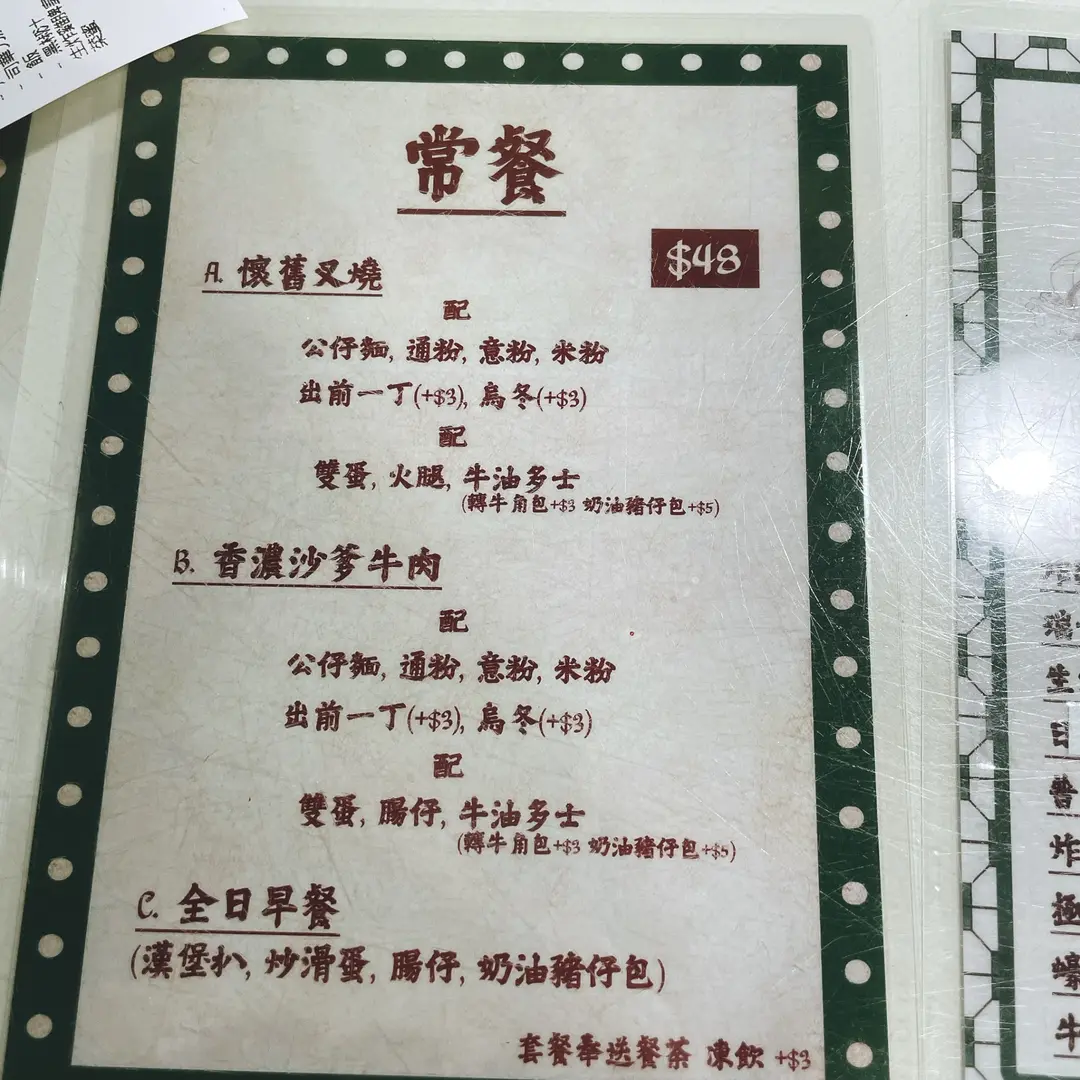 飯
黑椒汁
菜薑
常餐
$48
A. 懷舊叉燒
配
公仔麵, 通粉, 意粉, 米粉
出前一丁(+$3), 烏冬(+$3)
配
雙蛋, 火腿, 牛油多士
(轉牛角包+$3 奶油豬仔包+$5)
B. 香濃沙爹牛肉
配
公仔麵, 通粉, 意粉, 米粉
出前一丁(+$3), 烏冬(+$3)
配
雙蛋, 腸仔, 牛油多士
(轉牛角包+$3 奶油豬仔包+$5)
C. 全日早餐
(漢堡扒, 炒滑蛋, 腸仔, 奶油豬仔包)
套餐奉送餐茶 凍飲 +$3
瑞
生
日
普
炸
極
蠔
牛